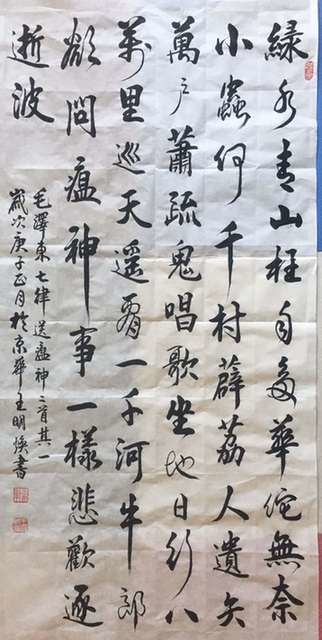 緑水青山枉自多華佗無奈
小蟲何千村薜荔人遺矢
萬户蕭疏鬼唱歌坐地日行八
萬里巡天遥看一千河牛郎
欲問瘟神事一樣悲歡逐
逝波
毛澤東七律送瘟神二首其一
歲次庚子正月於京華王明煥書